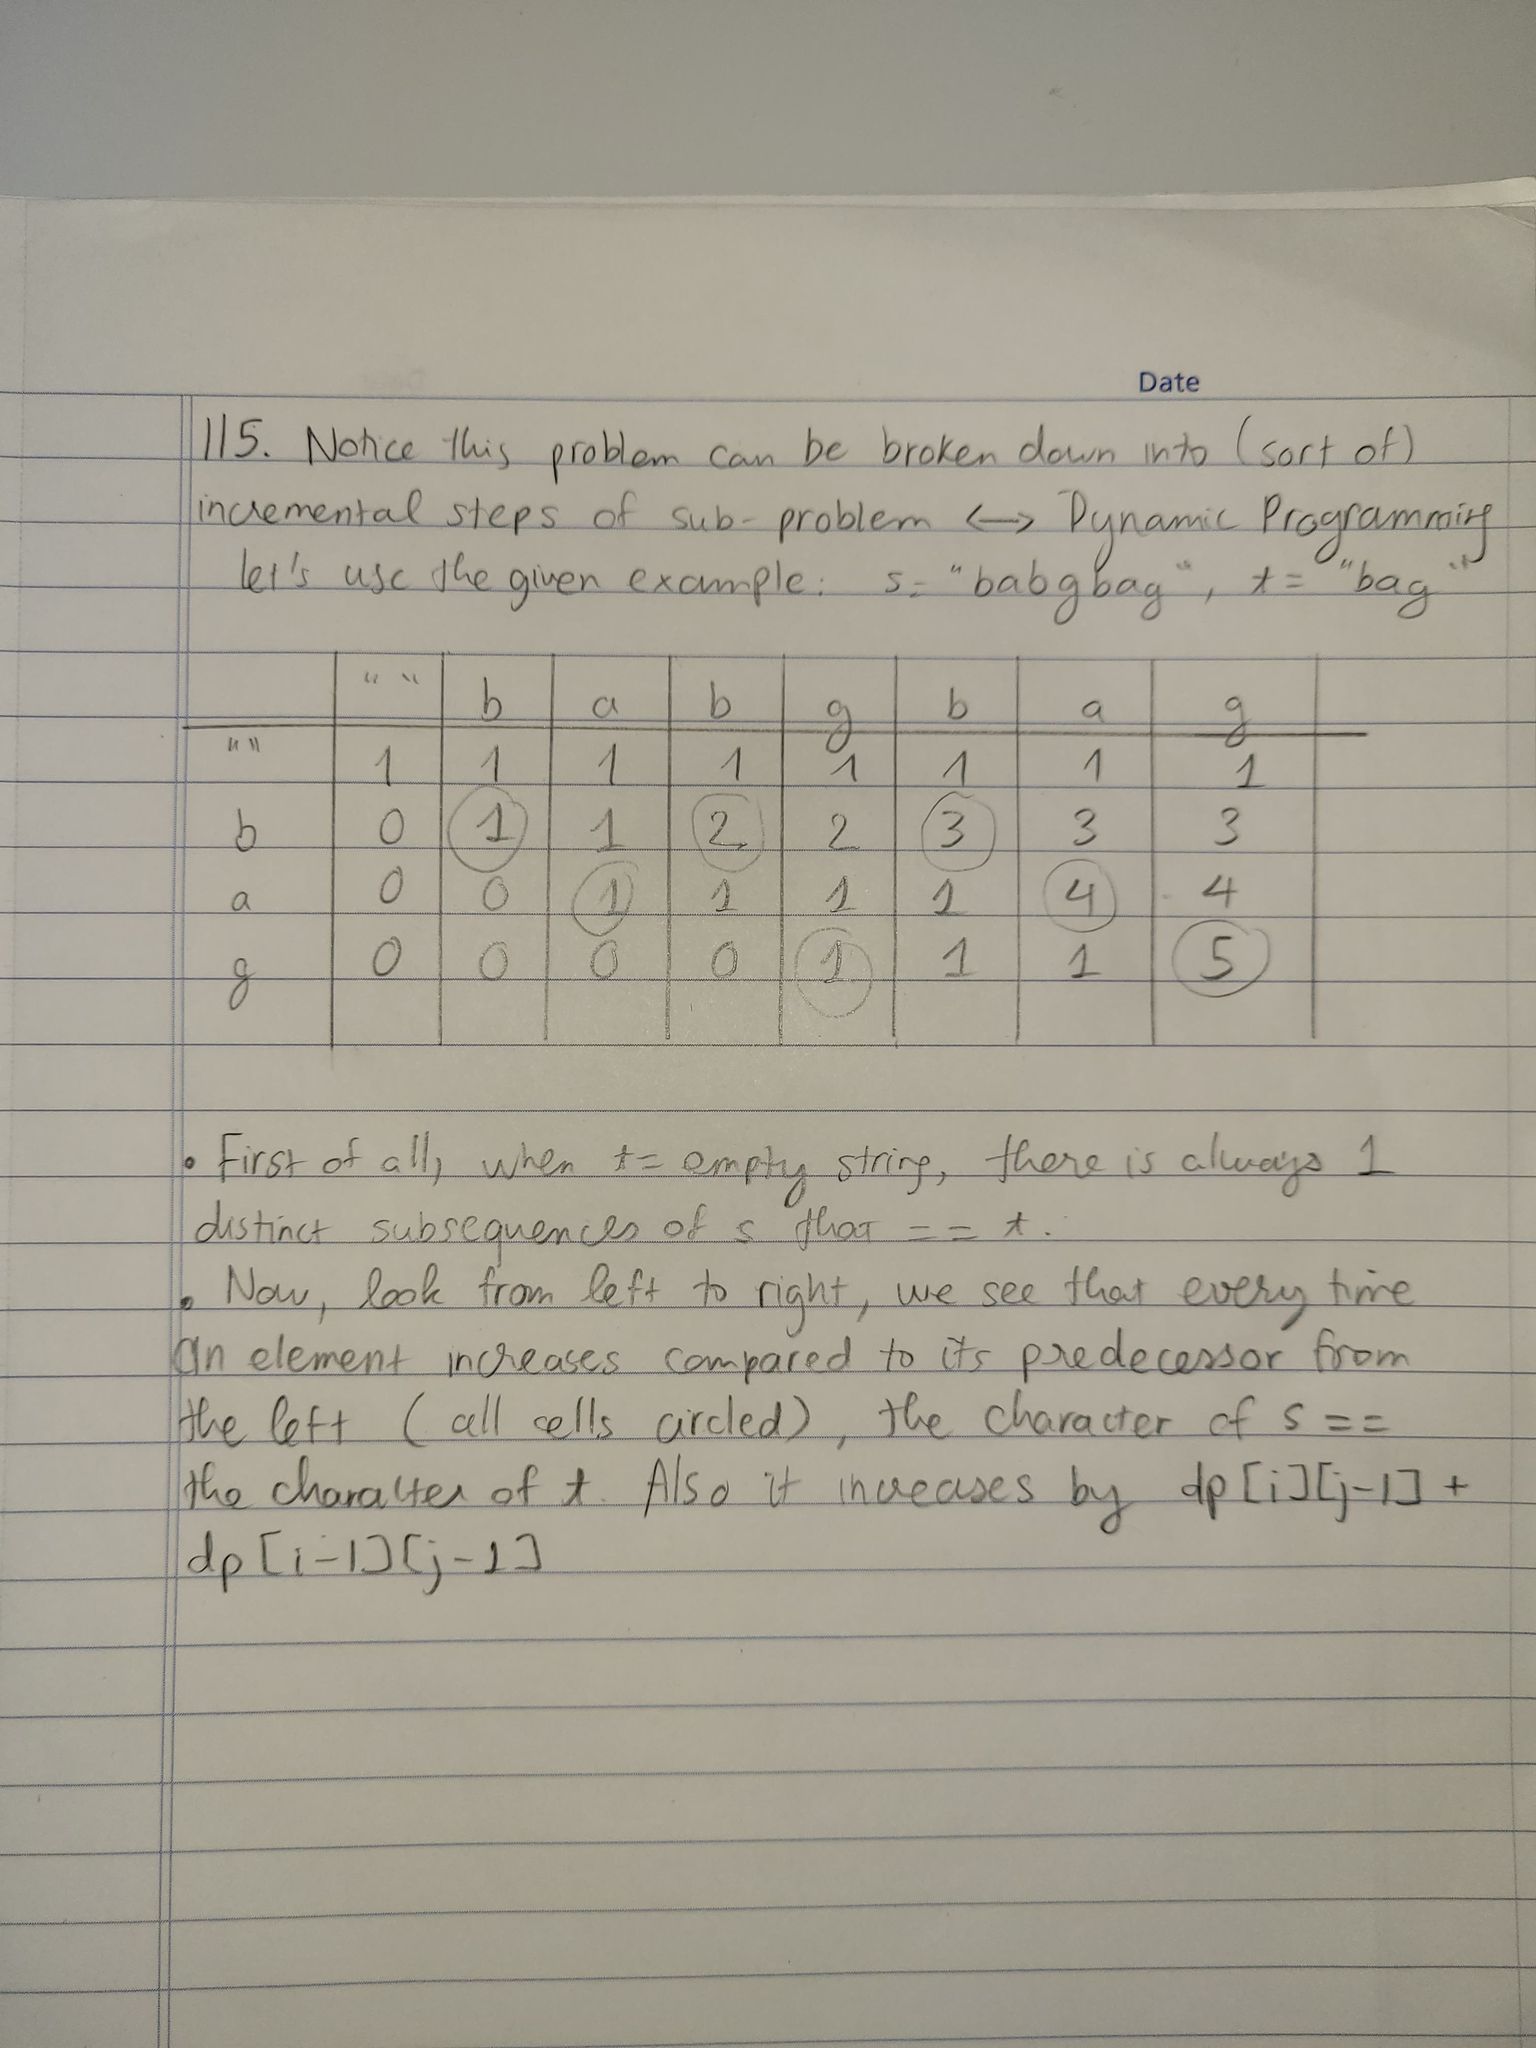 Date
115. Notice this problem can be broken down into (sort of)
incremental steps of sub-problem <-> Dynamic Programming
let's use the given example: s= "babgbag", t= "bag"
"" b a b g b a g
"" 1 1 1 1 1 1 1 1
b 0 1 1 2 2 3 3 3
a 0 0 1 1 1 1 4 4
g 0 0 0 0 1 1 1 5
• First of all, when t= empty string, there is always 1
distinct subsequences of s that == t.
• Now, look from left to right, we see that every time
an element increases compared to its predecessor from
the left (all cells circled), the character of s ==
the character of t. Also it increases by dp[i][j-1] +
dp[i-1][j-1]